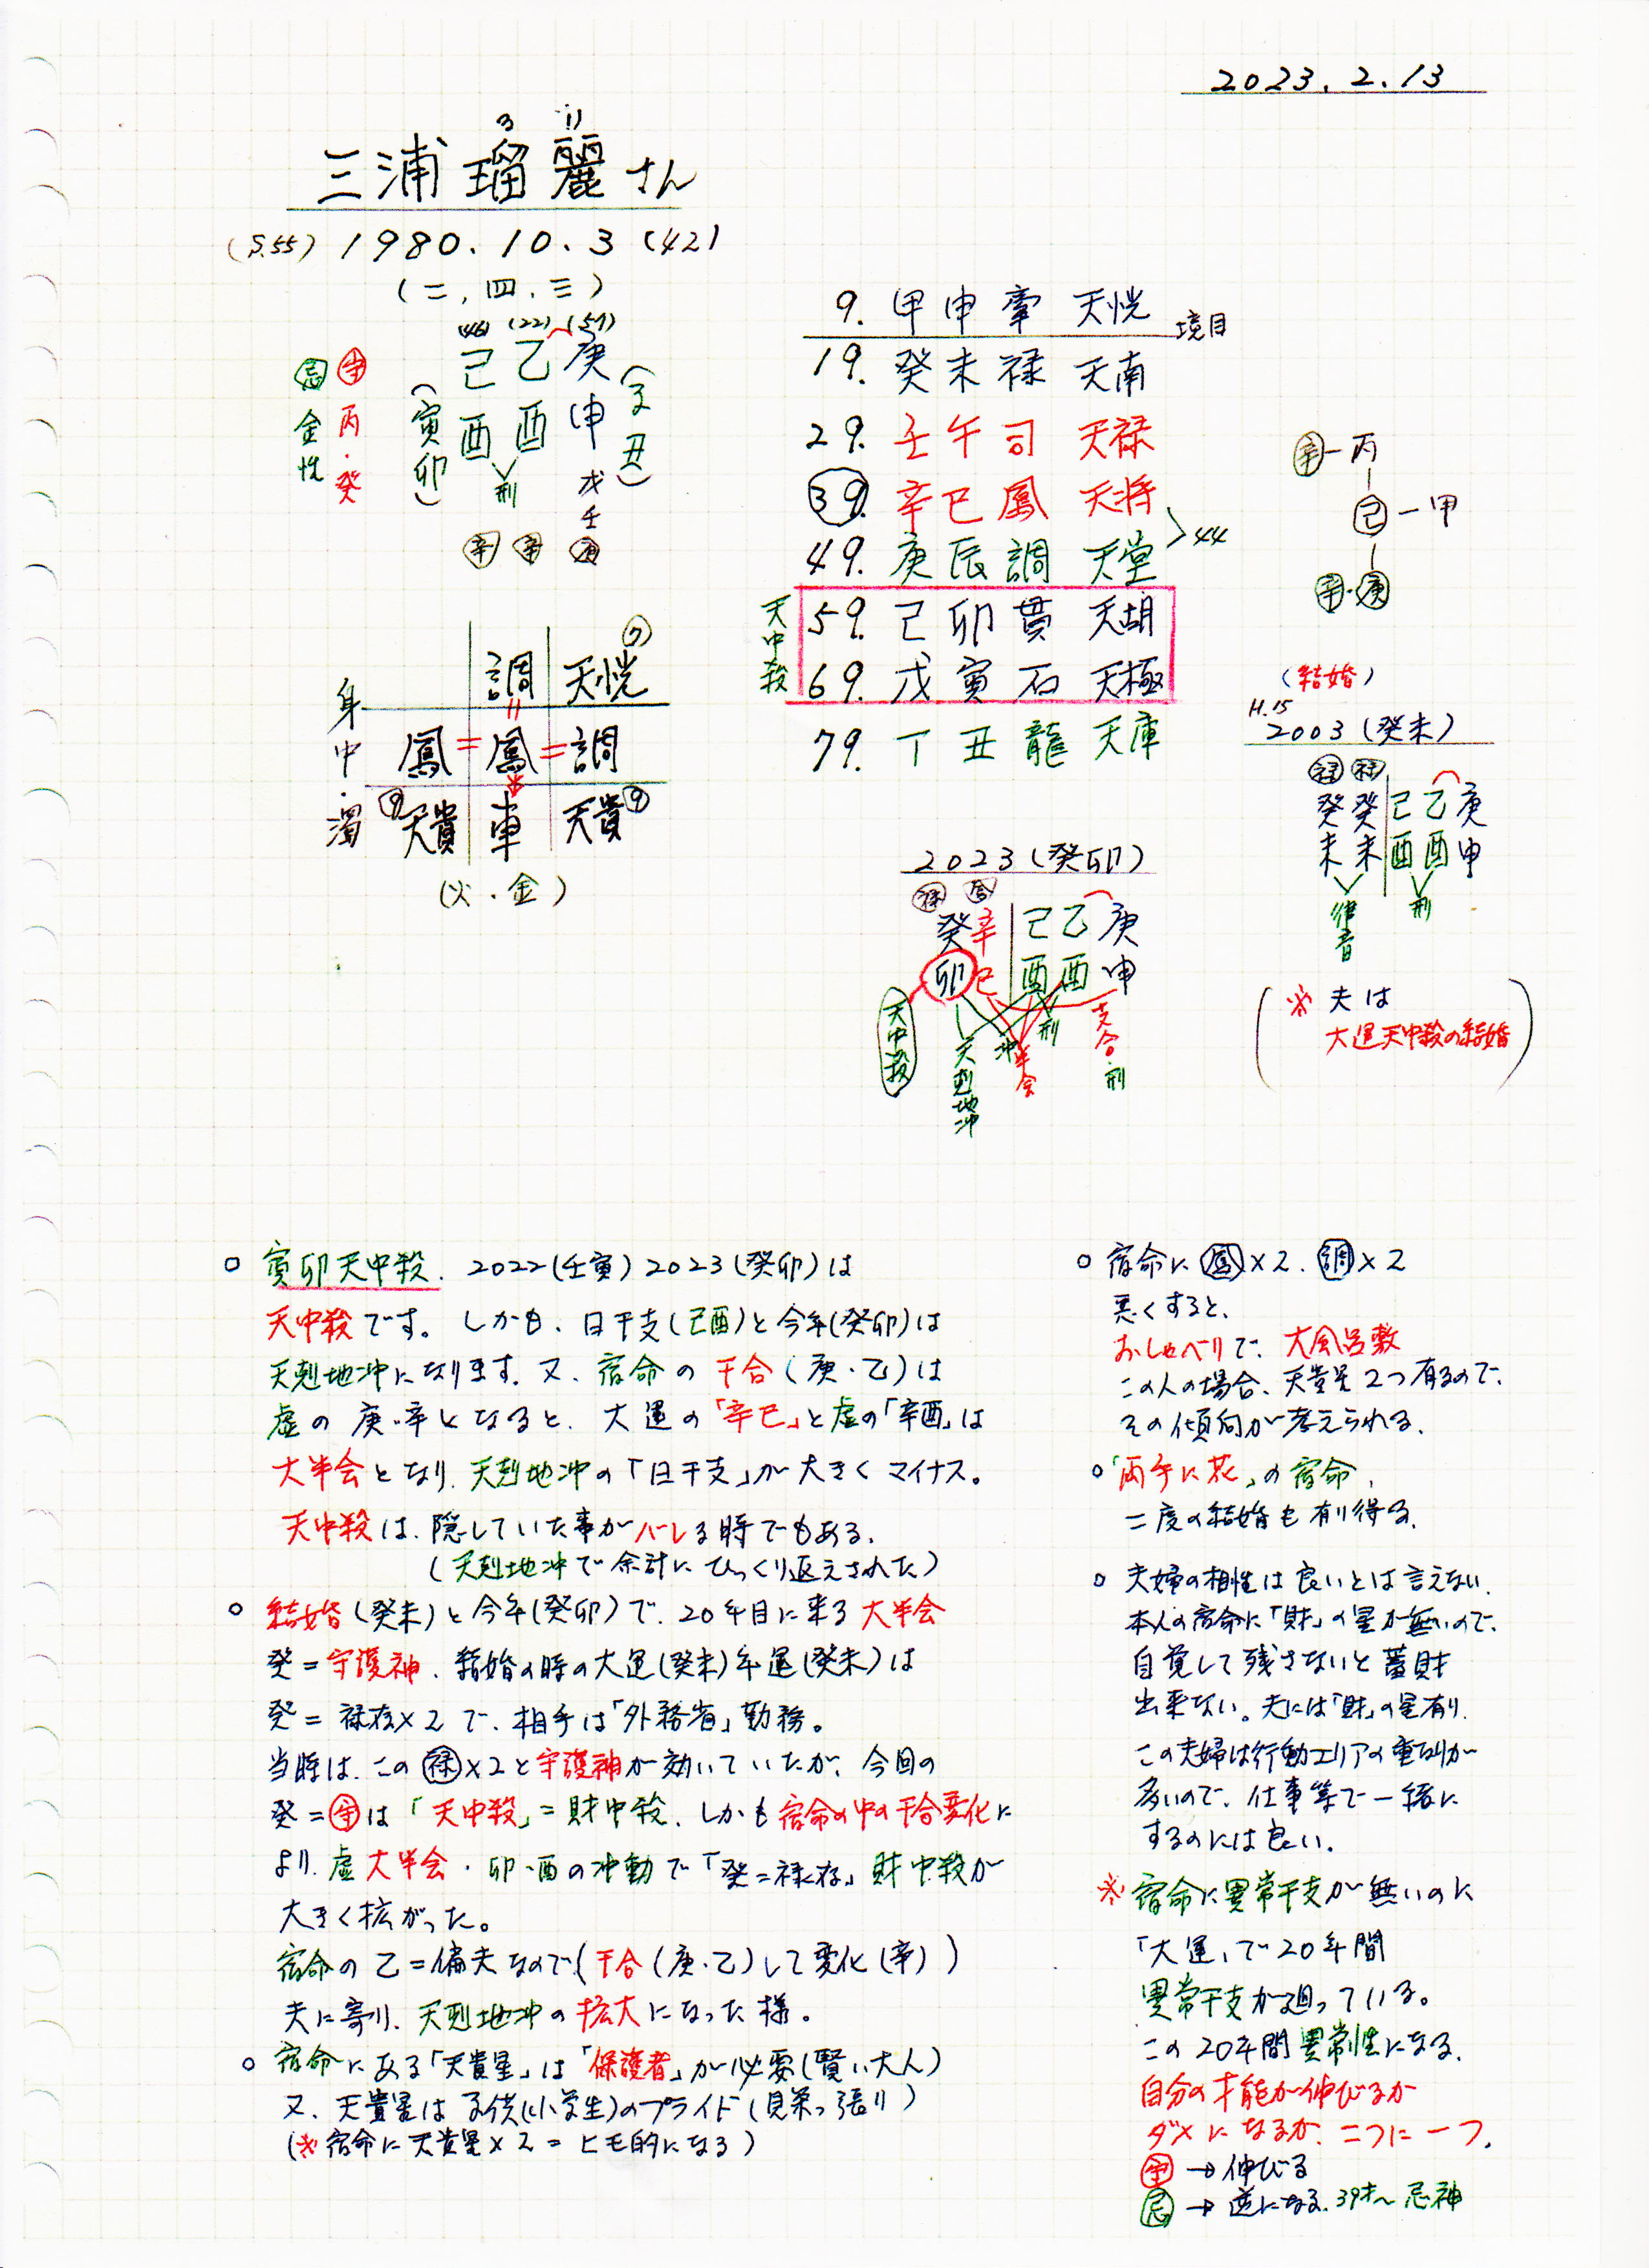 2023.2.13
る り
三浦瑠麗さん
(S.55) 1980.10.3 (42)
(二,四,三)
(46) (22) (57)
己 乙 庚
酉 酉 申
(寅卯)
(子丑)
刑
戊 壬 庚
辛 辛
守 丙・癸
忌 金性
調 天恍 7
鳳 = 鳳 = 調
9 天貴 車 天貴 9
身中・濁
(火・金)
9. 甲申 牽 天恍 境目
19. 癸未 禄 天南
29. 壬午 司 天禄
39. 辛巳 鳳 天将
49. 庚辰 調 天堂
44
天中殺
59. 己卯 貫 天胡
69. 戊寅 石 天極
79. 丁丑 龍 天庫
辛-丙
己-甲
辛・庚
(結婚)
H.15
2003 (癸未)
禄 禄
癸 癸 己 乙 庚
未 未 酉 酉 申
律音 刑
(※ 夫は
大運天中殺の結婚)
2023 (癸卯)
禄 鳳
癸 辛 己 乙 庚
卯 巳 酉 酉 申
天中殺 天剋地冲 冲 半会 刑 支合・刑
○ 寅卯天中殺. 2022(壬寅) 2023(癸卯)は
天中殺です。しかも、日干支(己酉)と今年(癸卯)は
天剋地冲になります. 又、宿命の 干合(庚・乙)は
虚の 庚・辛となると、大運の「辛巳」と虚の「辛酉」は
大半会となり、天剋地冲の「日干支」が大きくマイナス。
天中殺は、隠していた事がバレる時でもある.
(天剋地冲で余計にひっくり返えされた)
○ 結婚(癸未)と今年(癸卯)で、20年目に来る大半会
癸=守護神. 結婚の時の大運(癸未)年運(癸未)は
癸=禄存×2で、相手は「外務省」勤務。
当時は、この禄×2と守護神が効いていたが、今回の
癸=守は「天中殺」=財中殺. しかも宿命の中の干合変化に
より、虚大半会・卯・酉の冲動で「癸=禄存」財中殺が
大きく拡がった。
宿命の乙=偏夫なので(干合(庚・乙)して変化(辛))
夫に寄り、天剋地冲の拡大になった様。
○ 宿命にある「天貴星」は「保護者」が必要(賢い大人)
又、天貴星は子供(小学生)のプライド(見栄っ張り)
(※宿命に天貴星×2=ヒモ的になる)
○ 宿命に鳳×2、調×2
悪くすると、
おしゃべりで、大風呂敷
この人の場合、天貴星2つ有るので、
その傾向が考えられる.
○「両手に花」の宿命,
二度の結婚も有り得る.
○ 夫婦の相性は良いとは言えない.
本人の宿命に「財」の星が無いので、
自覚して残さないと蓄財
出来ない。夫には「財」の星有り.
この夫婦は行動エリアの重なりが
多いので、仕事等で一緒に
するのには良い.
※ 宿命に異常干支が無いのに
「大運」で20年間
異常干支が廻っている。
この20年間異常性になる.
自分の才能が伸びるか
ダメになるか、二つに一つ.
守 → 伸びる
忌 → 逆になる. 39才〜忌神